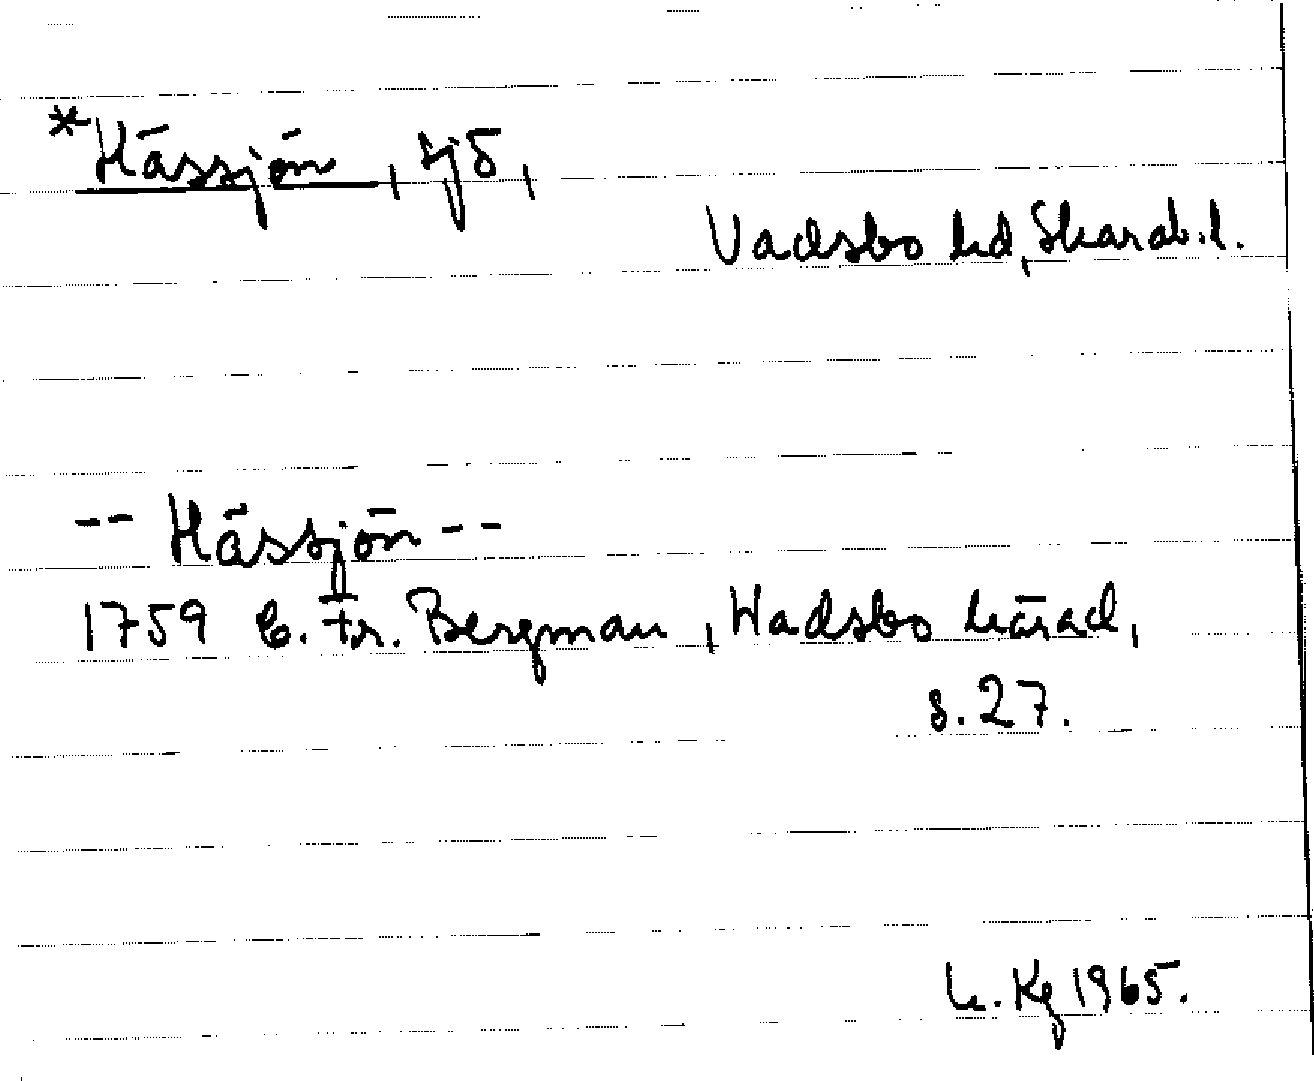 *Hässjön, sjö,
Vadsbo hd, Skarab.l.
-- Hässjön --
1759 C. Fr. Bergman, Wadsbo härad,
s. 27.
Kg 1965.